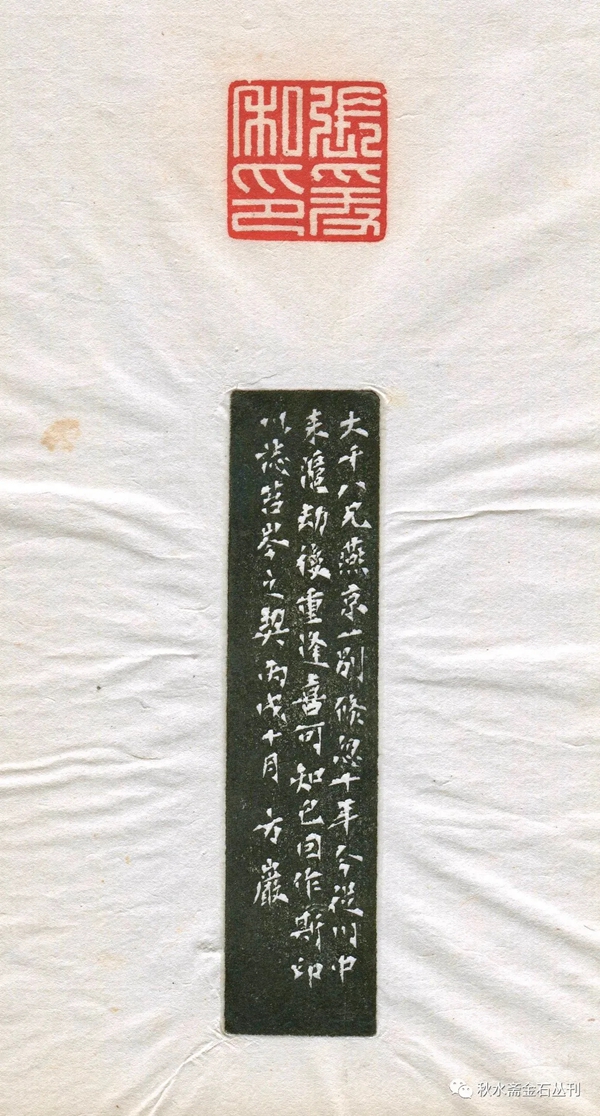 張爰
私印
大千八兄燕京一別倏忽十年今從川中
來滬劫後重逢喜可知已因作斯印
以誌苔岑之契丙戌十月 方巖
秋水斋金石丛刊